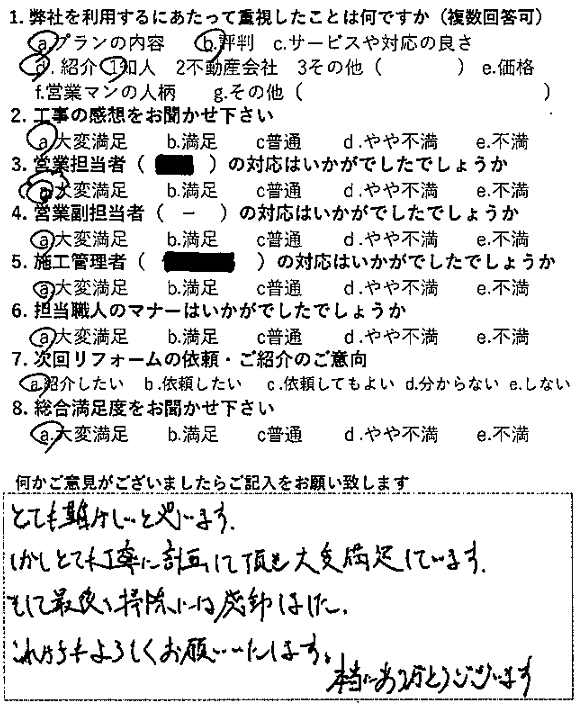 1. 弊社を利用するにあたって重視したことは何ですか（複数回答可）
a.プランの内容 b.評判 c.サービスや対応の良さ
d.紹介 1知人 2不動産会社 3その他（ ） e.価格
f.営業マンの人柄 g.その他（ ）
2. 工事の感想をお聞かせ下さい
a.大変満足 b.満足 c普通 d.やや不満 e.不満
3. 営業担当者（ ）の対応はいかがでしたでしょうか
a.大変満足 b.満足 c普通 d.やや不満 e.不満
4. 営業副担当者（ － ）の対応はいかがでしたでしょうか
a.大変満足 b.満足 c普通 d.やや不満 e.不満
5. 施工管理者（ ）の対応はいかがでしたでしょうか
a.大変満足 b.満足 c普通 d.やや不満 e.不満
6. 担当職人のマナーはいかがでしたでしょうか
a.大変満足 b.満足 c普通 d.やや不満 e.不満
7. 次回リフォームの依頼・ご紹介のご意向
a.紹介したい b.依頼したい c.依頼してもよい d.分からない e.しない
8. 総合満足度をお聞かせ下さい
a.大変満足 b.満足 c普通 d.やや不満 e.不満
何かご意見がございましたらご記入をお願い致します
とても難かしいと思います.
しかしとても丁寧に計画して頂き大変満足しています.
そして最後の掃除には感動しました.
これからもよろしくお願いいたします。
本当にありがとうございます